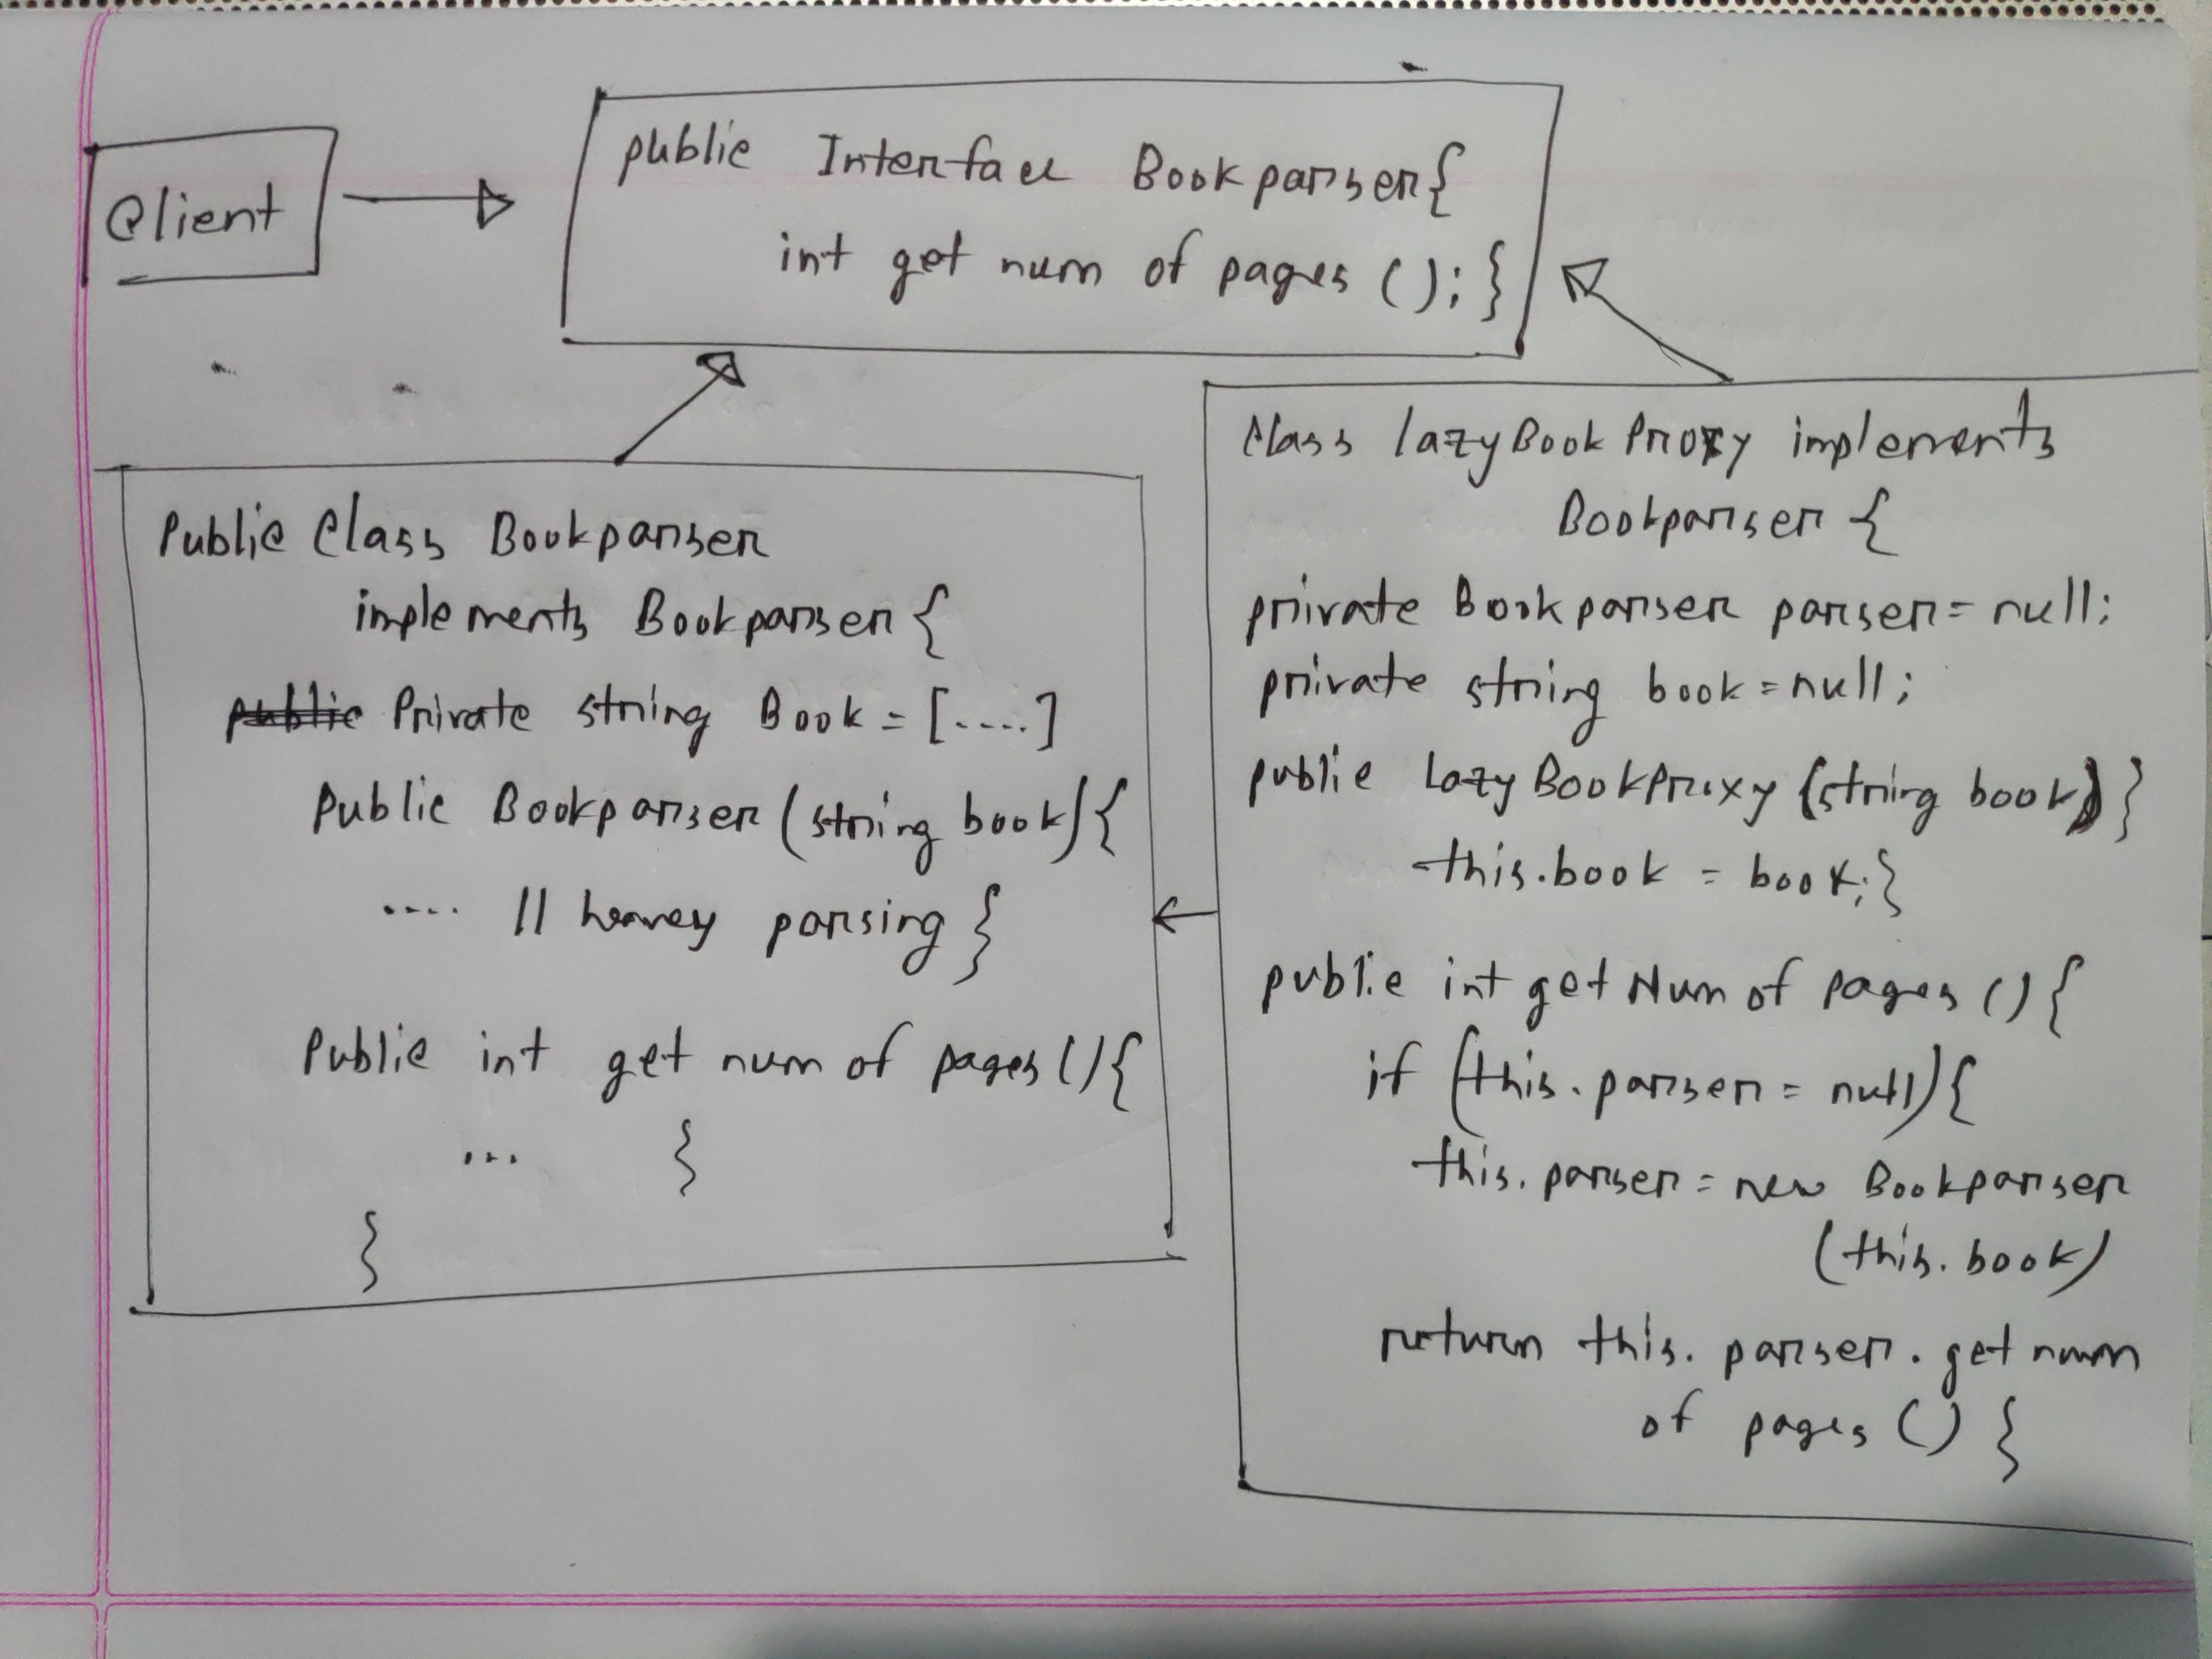 Client
public Interface Bookparser{
int get num of pages ( ); }
Public Class Bookparser
implements Bookparser {
public Private string Book = [....]
Public Bookparser (string book) {
.... // heavey parsing }
Public int get num of pages () {
... }
}
Class lazyBookProxy implements
Bookparser {
private Bookparser parser = null;
private string book = null;
public LazyBookProxy (string book) }
this.book = book; }
public int get Num of pages () {
if (this.parser = null) {
this.parser = new Bookparser
(this.book)
return this.parser.get num
of pages () }